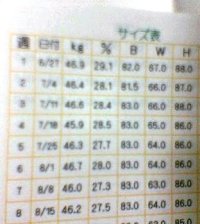 サイズ表
週 日付 kg % B W H
1 6/27 46.9 29.1 82.0 67.0 88.0
2 7/4 46.4 28.1 81.5 66.0 87.0
3 7/11 46.6 28.4 83.0 66.0 88.0
4 7/18 45.9 28.5 83.0 65.0 86.0
5 7/25 46.3 27.7 83.0 64.0 86.0
6 8/1 46.7 28.0 83.0 64.0 86.0
7 8/8 46.0 27.3 83.0 63.0 86.0
8 8/15 46.2 27.5 83.0 64.0 86.0